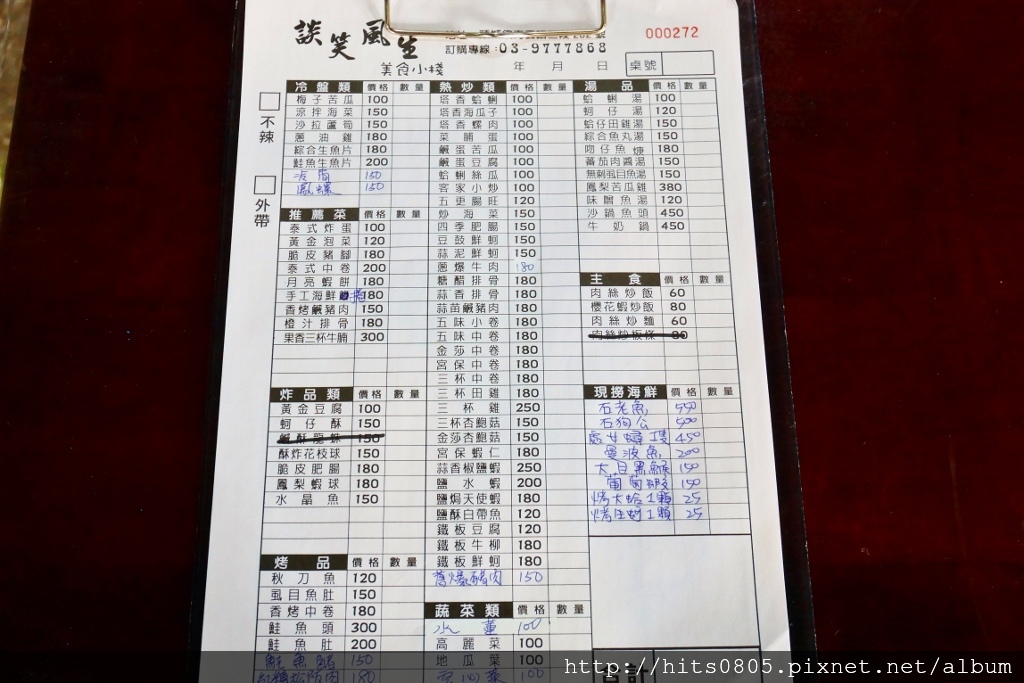 談笑風生
美食小棧
訂購專線:03-9777868
000272
年 月 日 桌號
不辣
外帶
冷盤類 價格 數量
梅子苦瓜 100
涼拌海菜 150
沙拉蘆筍 150
蔥油雞 180
綜合生魚片 180
鮭魚生魚片 200
150
鳳螺 150
推薦菜 價格 數量
泰式炸蛋 100
黃金泡菜 120
脆皮豬腳 180
泰式中卷 200
月亮蝦餅 180
手工海鮮 180
香烤鹹豬肉 150
橙汁排骨 180
果香三杯牛腩 300
炸品類 價格 數量
黃金豆腐 100
蚵仔酥 150
鹹酥龍珠 150
酥炸花枝球 150
脆皮肥腸 180
鳳梨蝦球 180
水晶魚 150
烤品 價格 數量
秋刀魚 120
虱目魚肚 150
香烤中卷 180
鮭魚頭 300
鮭魚肚 200
150
180
熱炒類 價格 數量
塔香蛤蜊 100
塔香海瓜子 100
塔香螺肉 100
菜脯蛋 100
鹹蛋苦瓜 100
鹹蛋豆腐 100
蛤蜊絲瓜 100
客家小炒 100
五更腸旺 120
炒海菜 150
四季肥腸 150
豆鼓鮮蚵 150
蒜泥鮮蚵 150
蔥爆牛肉 180
糖醋排骨 180
蒜香排骨 180
蒜苗鹹豬肉 180
五味小卷 180
五味中卷 180
金莎中卷 180
宮保中卷 180
三杯中卷 180
三杯田雞 180
三杯雞 250
三杯杏鮑菇 150
金莎杏鮑菇 150
宮保蝦仁 180
蒜香椒鹽蝦 250
鹽水蝦 200
鹽焗天使蝦 180
鹽酥白帶魚 120
鐵板豆腐 120
鐵板牛柳 180
鐵板鮮蚵 180
蔥爆豬肉 150
蔬菜類 價格 數量
水蓮 100
高麗菜 100
地瓜葉 100
100
湯品 價格 數量
蛤蜊湯 100
蚵仔湯 120
蛤仔田雞湯 150
綜合魚丸湯 150
吻仔魚焿 180
蕃茄肉醬湯 150
無刺虱目魚湯 150
鳳梨苦瓜雞 380
味噌魚湯 120
沙鍋魚頭 450
牛奶鍋 450
主食 價格 數量
肉絲炒飯 60
櫻花蝦炒飯 80
肉絲炒麵 60
肉絲炒板條 80
現撈海鮮 價格 數量
石老魚 550
石狗公 500
處女蟳 1隻 450
曼波魚 200
大目黑鯧 150
葡萄蝦 150
烤大蛤1顆 25
烤生蚵1顆 25
合計
http://hits0805.pixnet.net/album